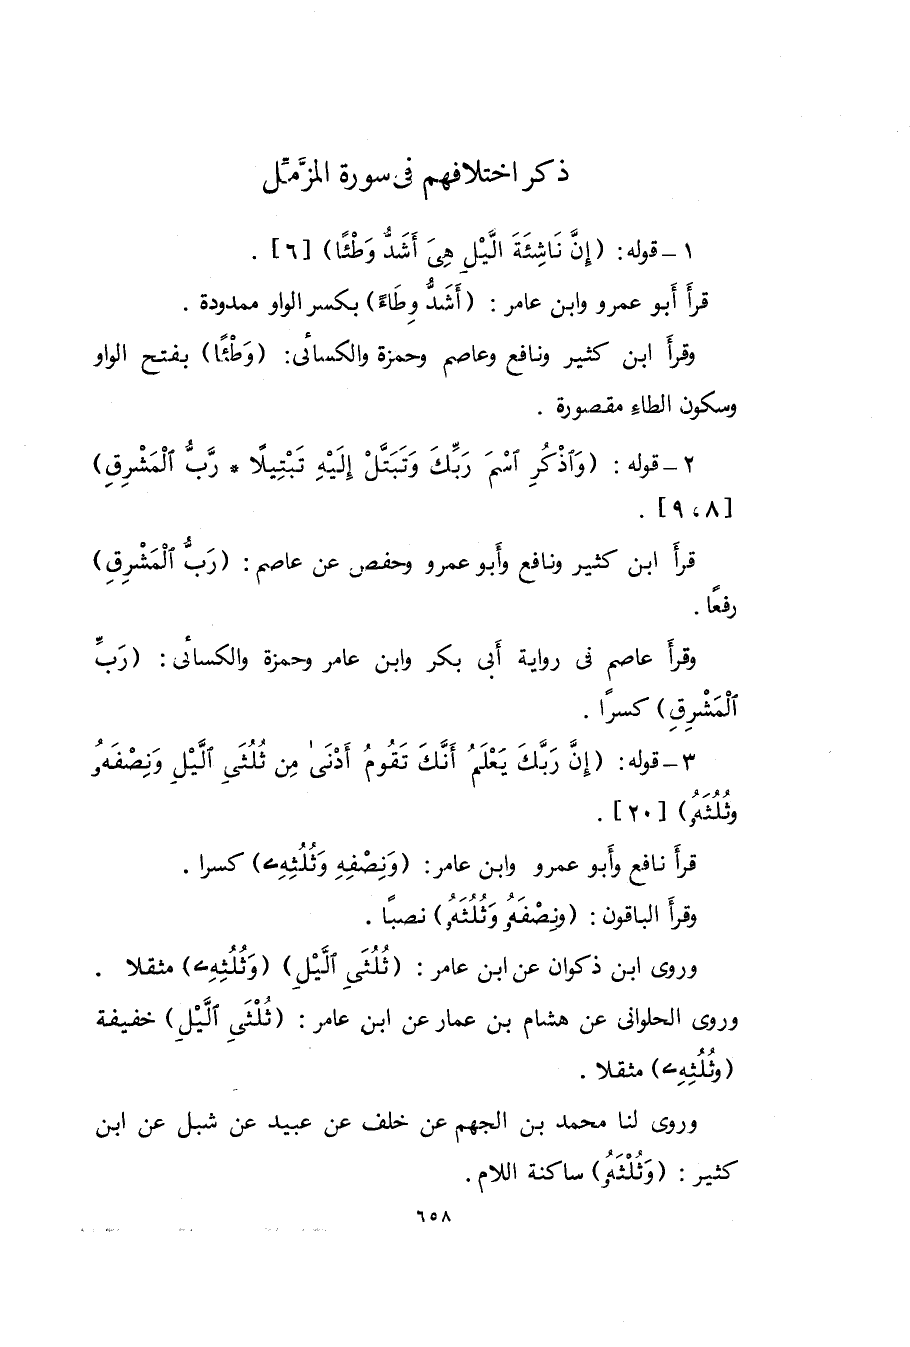 ذكر اختلافهم فى سورة المزَّمِّل
١ ـ قوله: (إِنَّ نَاشِئَةَ الَّيْلِ هِىَ أَشَدُّ وَطْئًا) [٦] .
قرأ أبو عمرو وابن عامر : (أَشَدُّ وِطَاءً) بكسر الواو ممدودة .
وقرأ ابن كثير ونافع وعاصم وحمزة والكسائى: (وَطْئًا) بفتح الواو
وسكون الطاء مقصورة .
٢ ـ قوله : (وَٱذْكُرِ ٱسْمَ رَبِّكَ وَتَبَتَّلْ إِلَيْهِ تَبْتِيلًا * رَّبُّ ٱلْمَشْرِقِ)
[٨، ٩] .
قرأ ابن كثير ونافع وأبو عمرو وحفص عن عاصم : (رَبُّ ٱلْمَشْرِقِ)
رفعًا .
وقرأ عاصم فى رواية أبى بكر وابن عامر وحمزة والكسائى : (رَبِّ
ٱلْمَشْرِقِ) كسرًا .
٣ ـ قوله: (إِنَّ رَبَّكَ يَعْلَمُ أَنَّكَ تَقُومُ أَدْنَىٰ مِن ثُلُثَىِ ٱلَّيْلِ وَنِصْفَهُۥ
وثُلُثَهُۥ) [٢٠] .
قرأ نافع وأبو عمرو وابن عامر: (وَنِصْفِهِ وَثُلُثِهِۦ) كسرا .
وقرأ الباقون : (ونِصْفَهُۥ وَثُلُثَهُۥ) نصبًا .
وروى ابن ذكوان عن ابن عامر : (ثُلُثَىِ ٱلَّيْلِ) (وَثُلُثِهِۦ) مثقلا .
وروى الحلوانى عن هشام بن عمار عن ابن عامر : (ثُلْثَىِ ٱلَّيْلِ) خفيفة
(وثُلُثِهِۦ) مثقلا .
وروى لنا محمد بن الجهم عن خلف عن عبيد عن شبل عن ابن
كثير : (وَثُلْثَهُۥ) ساكنة اللام .
٦٥٨